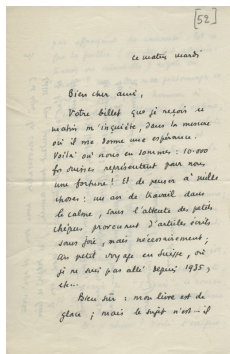 [52]
ce matin mardi
Bien cher ami,
Votre billet que je reçois ce
matin m'inquiète, dans la mesure
où il me donne une espérance.
Voilà où nous en sommes : 10.000
frs suisses représentent pour nous
une fortune ! Et de penser à mille
choses : un an de travail dans
le calme, sans l'attente des petits
chèques, provenant d'articles écrits
sans joie, mais nécessairement ;
un petit voyage en Suisse, où
je ne suis pas allé depuis 1935,
etc...
Bien sûr : mon livre est de
glace ; mais le sujet n'est-il